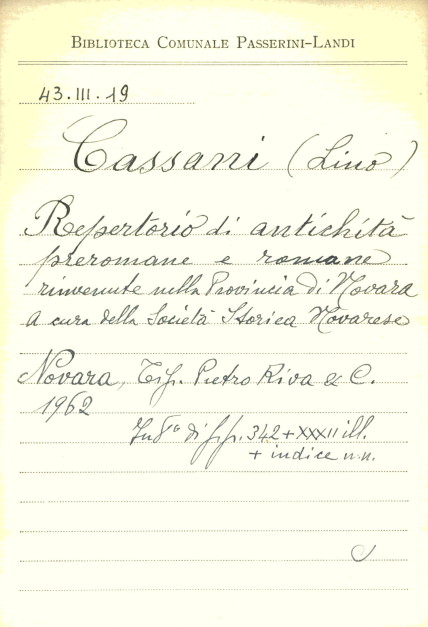 BIBLIOTECA COMUNALE PASSERINI-LANDI
43.III.19
Cassani (Lino)
Repertorio di antichità
preromane e romane
rinvenute nella Provincia di Novara
a cura della Società Storica Novarese
Novara, Tip. Pietro Riva & C.
1962
In 8° di pp. 342+XXXII ill.
+ indice n.n.